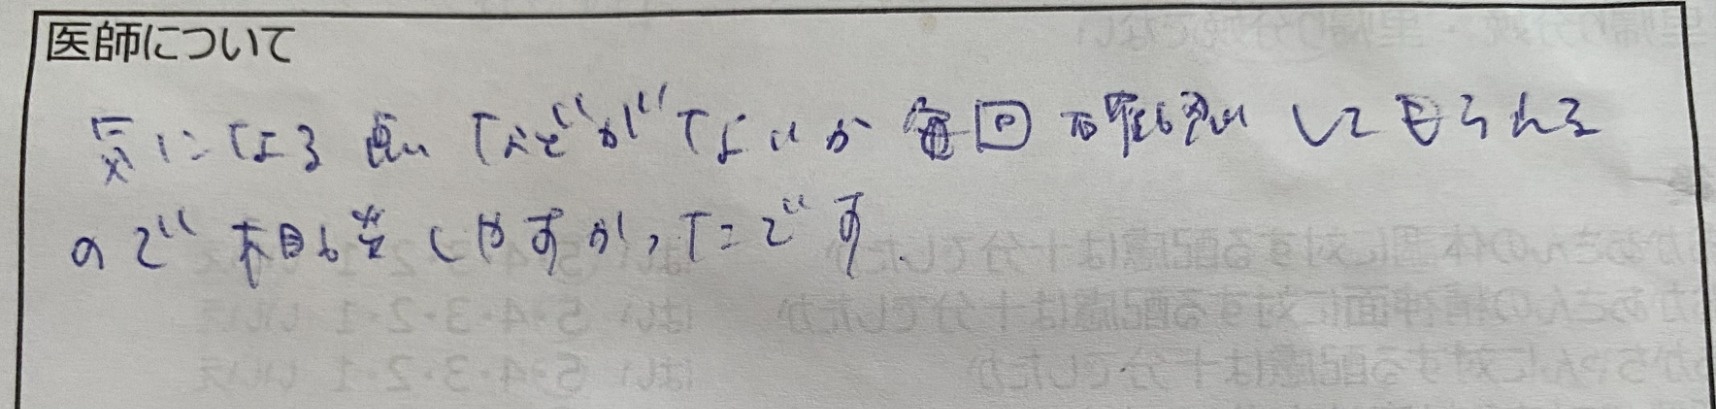 医師について
気になる点などがないか毎回確認してもらえる
ので相談しやすかったです。